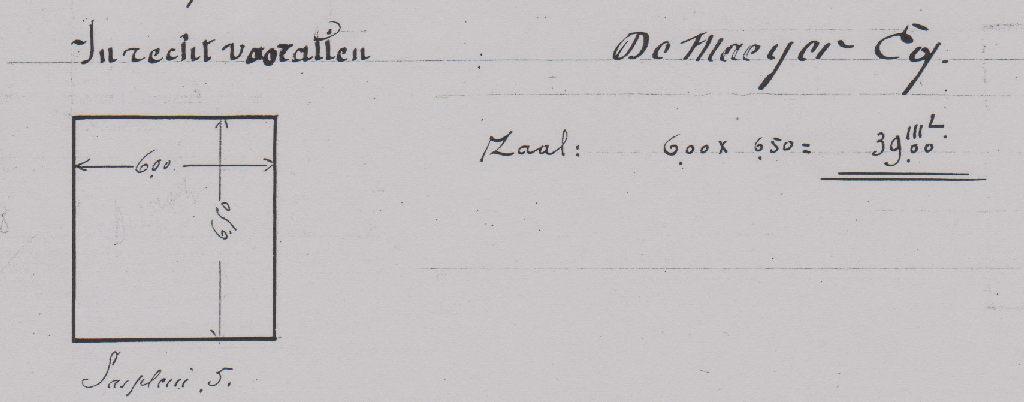 In recht voorallen
De Maeyer Eg.
Zaal: 6.00 x 6.50 = 39.00
6.00
6.50
Sasplein 5.